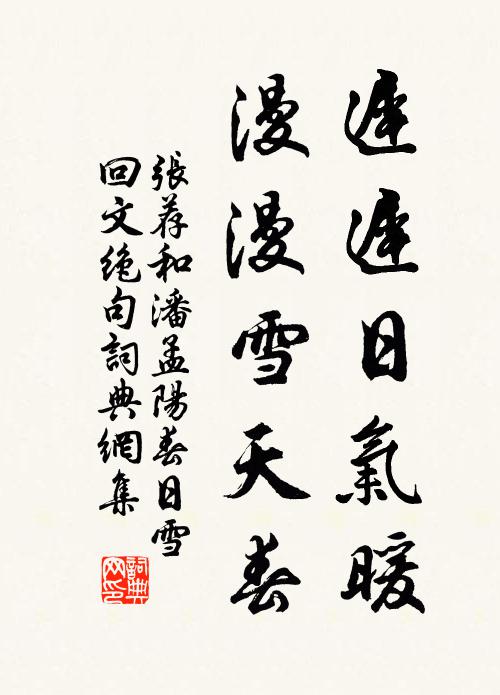 遲遲日氣暖
漫漫雪天春
張荐和潘孟陽春日雪
回文絕句詞典網集
詞典
网印